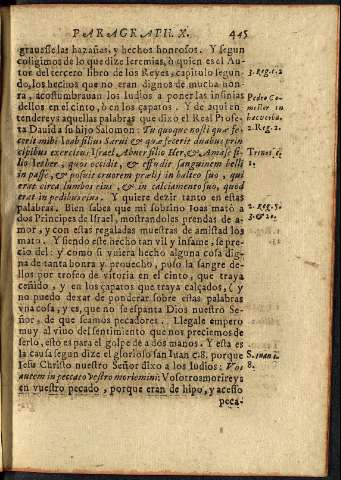 PARAGRAPH. X. 445
grauesse las hazañas, y hechos honrosos. Y segun
coligimos de lo que dize Ieremias, ò quien es el Au-
tor del tercero libro de los Reyes, capitulo segun- 3. Reg. c. 2
do, los hechos que no eran dignos de mucha hon-
ra, acostumbrauan los Iudios a ponerlas insinias Pedro Co-
dellos en el cinto, ò en los çapatos. Y de aqui en- mestor in
tendereys aquellas palabras que dixo el Real Profe- hac verba.
ta Dauid a su hijo Salomon: Tu quoque nosti quæ fe- 2. Reg. 2.
cerit mihi Ioab filius Saruiæ & quæ fecerit duobus prin
cipibus exercitus Israel, Abner filio Her, & Amasæ fi-
lio Iether, quos occidit, & effudit sanguinem belli
in pace, & posuit cruorem prælij in balteo suo, qui
erat circa lumbos eius, & in calciamento suo, quod
erat in pedibus eius. Y quiere dezir tanto en estas
palabras. Bien sabes que mi sobrino Ioas matò a 2. Reg. 3.
dos Principes de Israel, mostrandoles prendas de a- 3. & 20.
mor, y con estas regaladas muestras de amistad los
mato. Y siendo este hecho tan vil y infame, se pre-
cio del: y como si vuiera hecho alguna cosa dig-
na de tanta honra y prouecho, puso la sangre de-
llos por trofeo de vitoria en el cinto, que traya
ceñido, y en los çapatos que traya calçados, (y
no puedo dexar de ponderar sobre estas palabras
vna cosa, y es, que no se espanta Dios nuestro Se-
ñor, de que seamos pecadores. Llegale empero
muy al viuo del sentimiento que nos preciemos de
serlo, esto es para el golpe de a dos manos. Y esta es
la causa segun dize el glorioso san Iuan c. 8. porque S. Iuan c.
Iesu Christo nuestro Señor dixo a los Iudios: Vos 8.
autem in peccato vestro moriemini: Vosotros morireys
en vuestro pecado, porque eran de hipo, y acesso
peca-